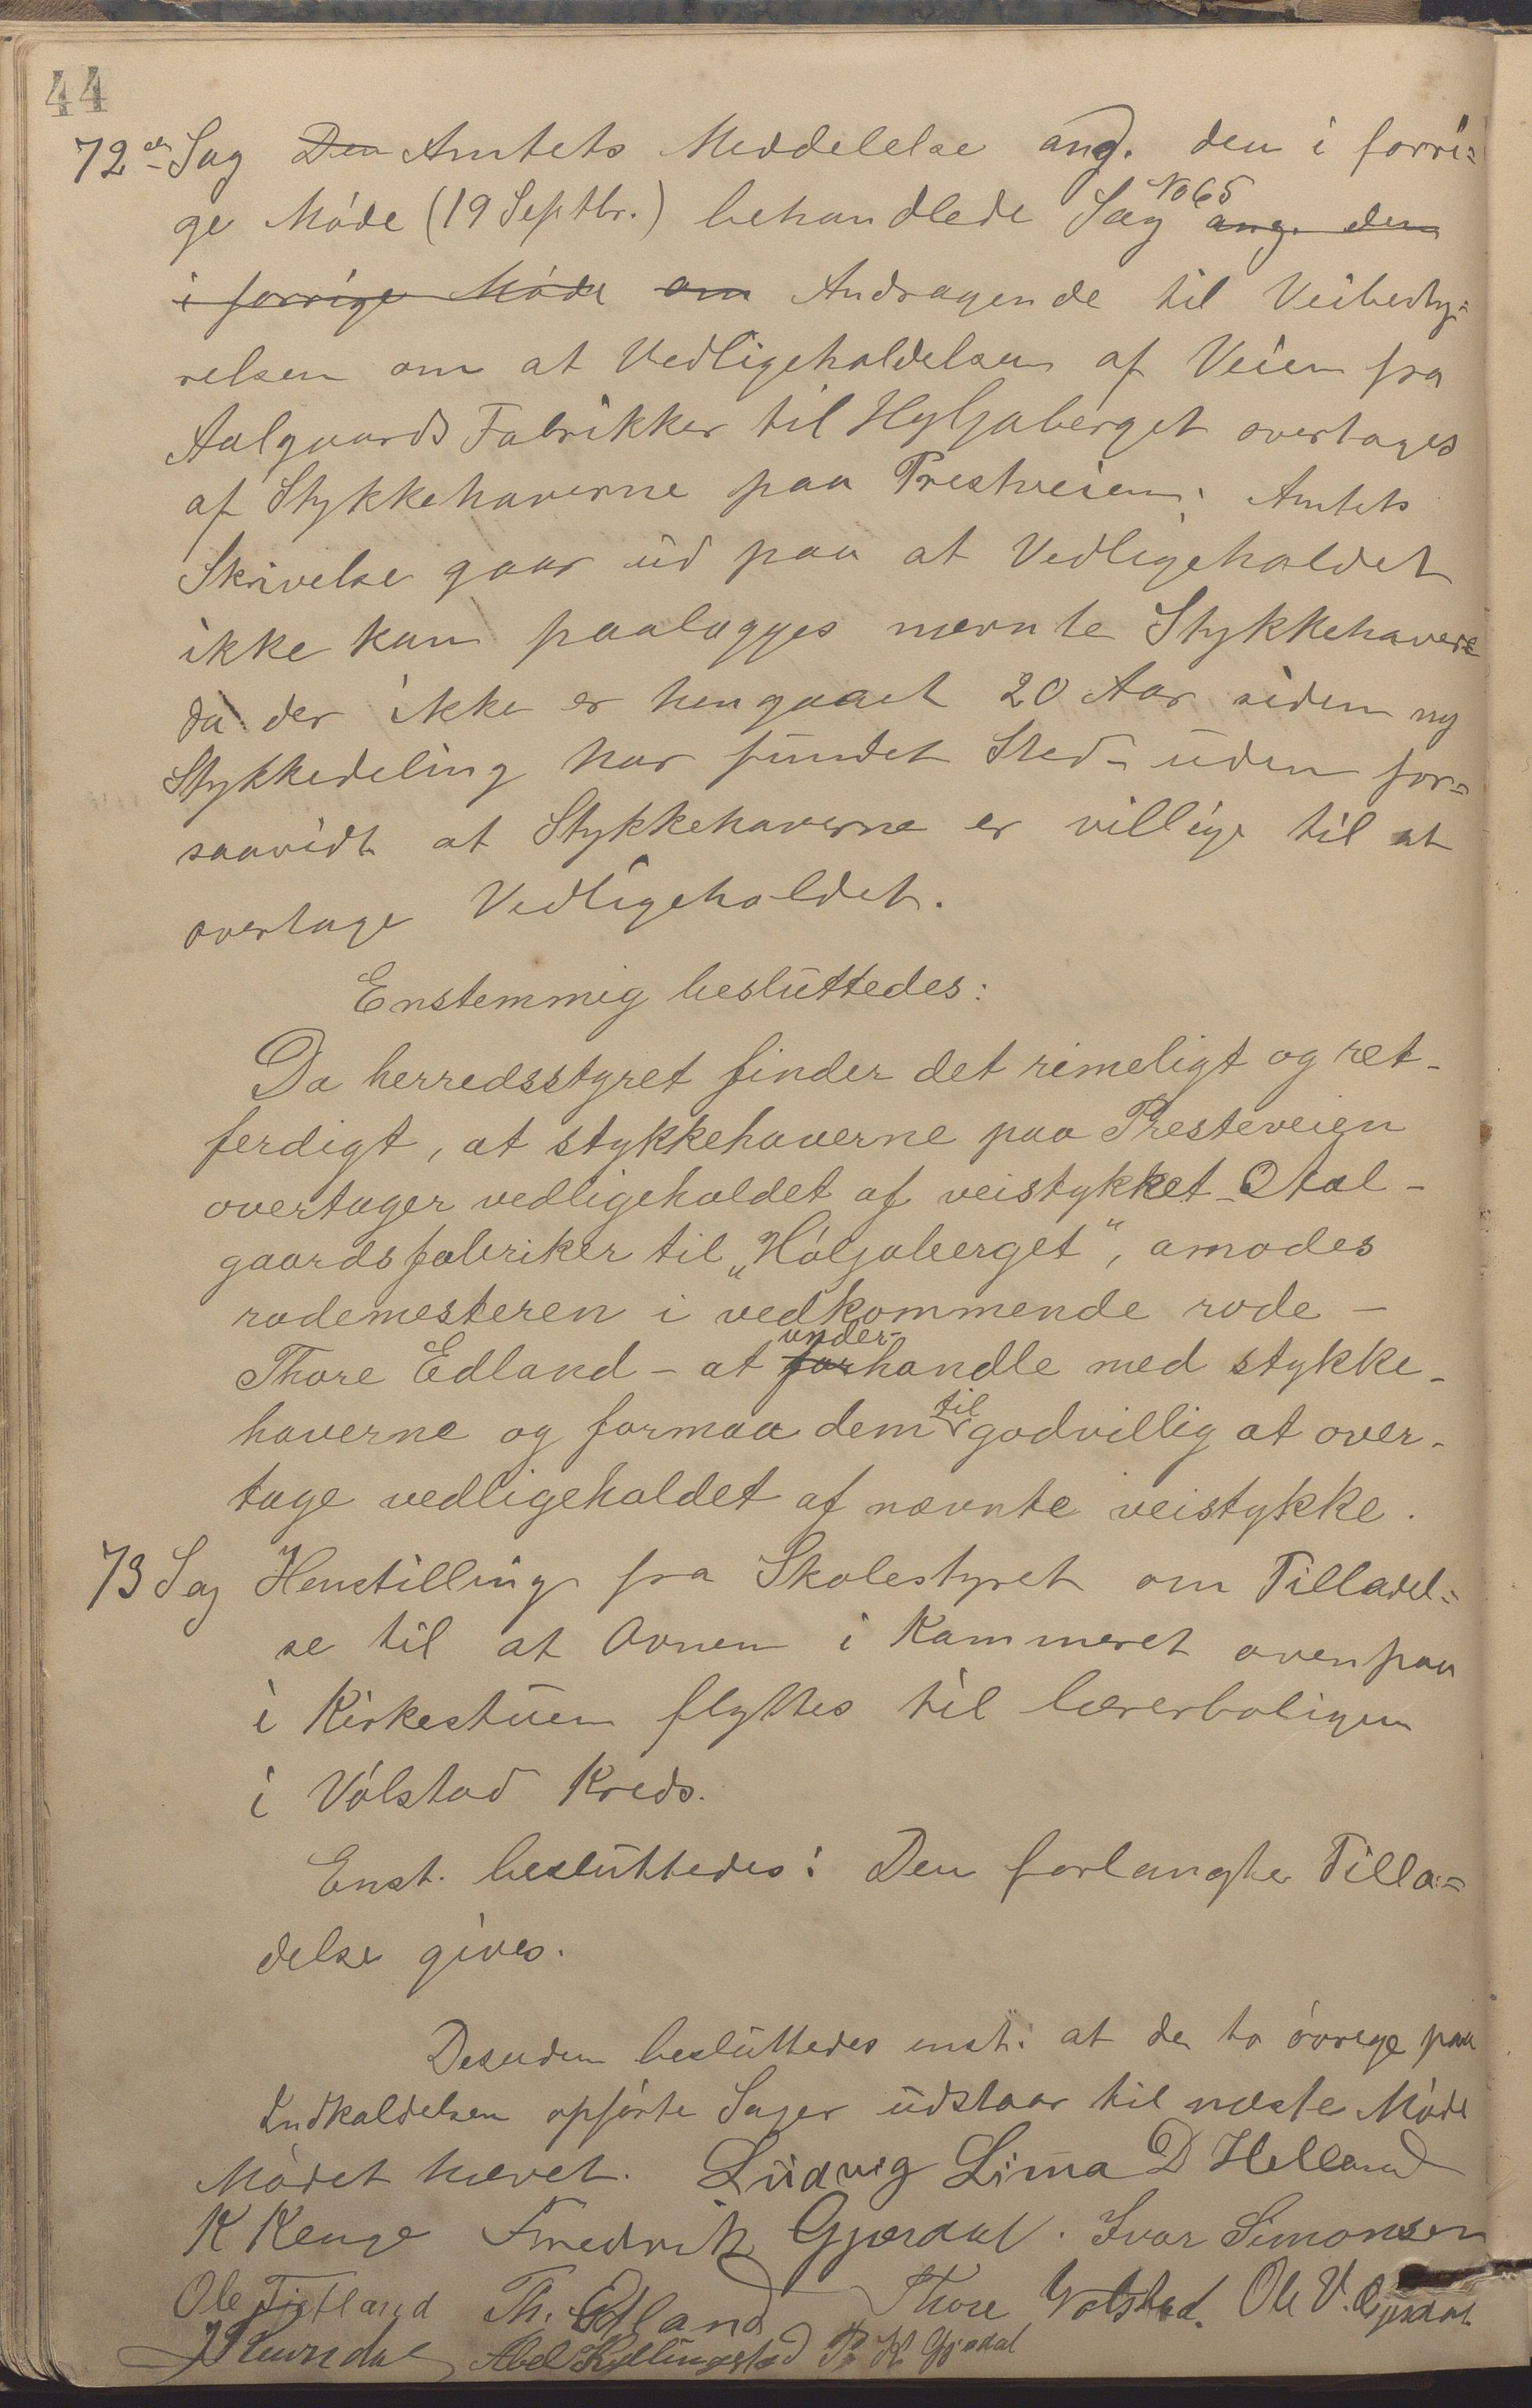 44
72de Sag Den Amtets Meddelelse ang. den i forri=
ge Møde (19 Septbr.) behandlede Sag No 65 ang. den
i forrige Møde om Andragende til Veibesty=
relsen om at Vedligeholdelsen af Veien fra
Aalgaards Fabrikker til Hyljaberget overtages
af Stykkehaverne paa Prestveien; Amtets
Skrivelse gaar ud paa at Vedligeholdet
ikke kan paalægges nævnte Stykkehavere
da der ikke er hengaaet 20 Aar siden ny
Stykkedeling har fundet Sted – uden for=
saavidt at Stykkehaverne er villige til at
overtage Vedligeholdet.
Enstemmig besluttedes:
Da herredsstyret finder det rimeligt og ret-
ferdigt, at stykkehaverne paa Presteveien
overtager vedligeholdet af veistykket Aal-
gaards fabriker til „Høljaberget“, amodes
rodemesteren i vedkommende rode –
under-
Thore Edland – at forhandle med stykke-
til
haverne og formaa dem godvillig at over-
tage vedligeholdet af nævnte veistykke.
73 Sag Henstilling fra Skolestyret om Tilladel=
se til at Ovnen i Kammeret ovenpaa
i Kirkestuen flyttes til lærerboligen
i Vølstad Kreds.
Enst. besluttedes: Den forlangte Tilla=
delse gives.
Desuden besluttedes enst: at de to øvrige paa
Indkaldelsen opførte Sager udstaar til næste Møde
Mødet hævet. Ludvig Lima D Helland
K Kenge Fredrik Gjærdal. Ivar Simonsen
Ole Fjetland Th. Edland Thore Volstad. Ole V. Gjesdal
Abel Kyllingstad P. K. Gjedal